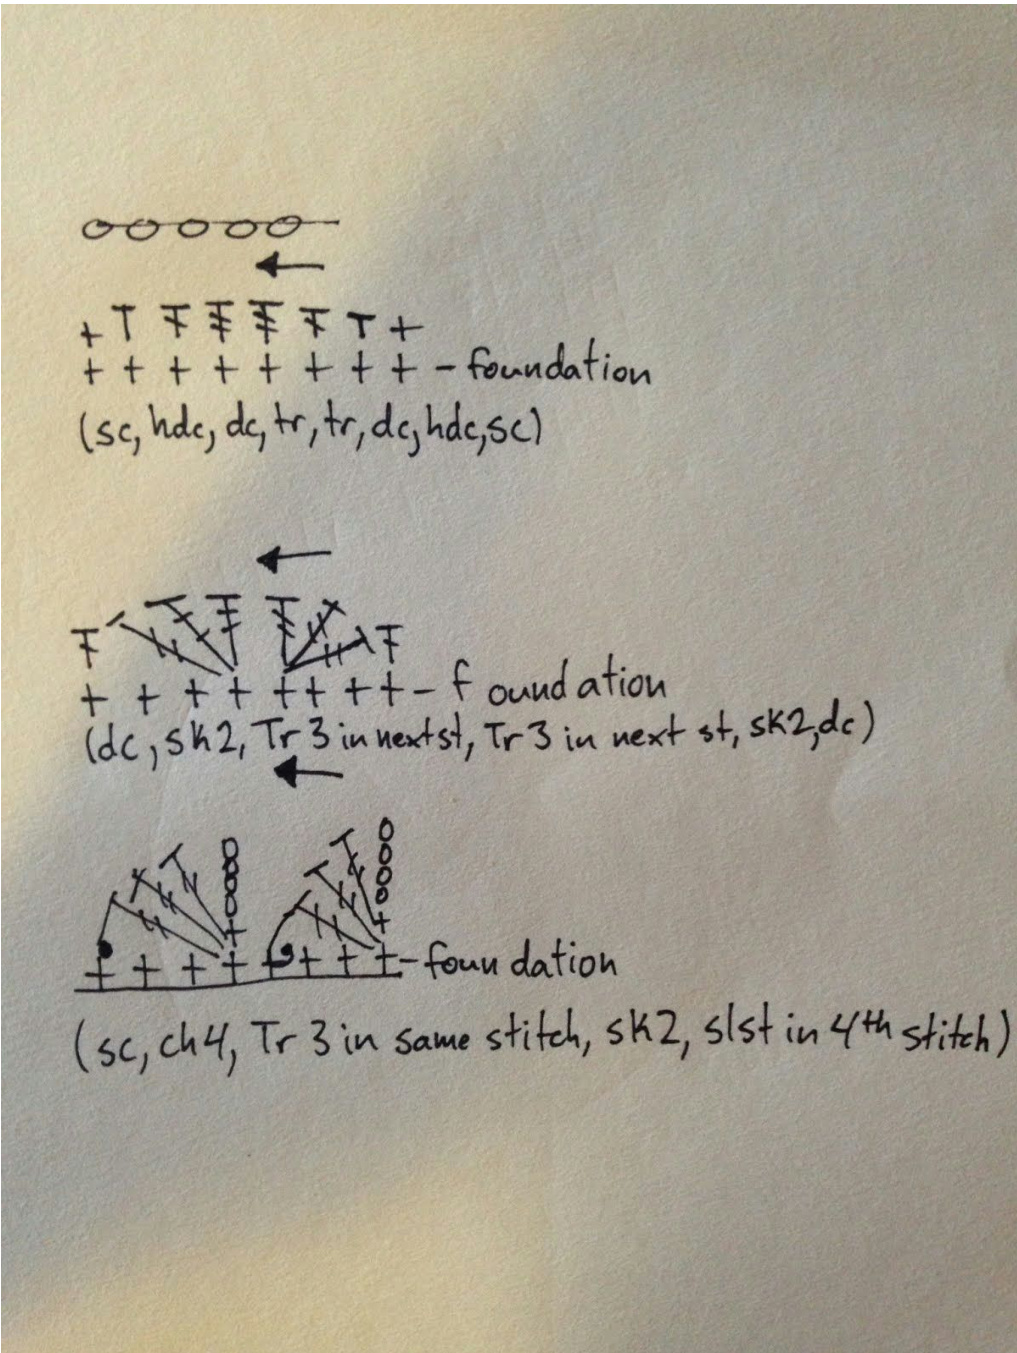 - foundation
(sc, hdc, dc, tr, tr, dc, hdc, sc)
- foundation
(dc, sk2, Tr 3 in next st, Tr 3 in next st, sk2, dc)
- foundation
(sc, ch4, Tr 3 in same stitch, sk2, slst in 4th stitch)